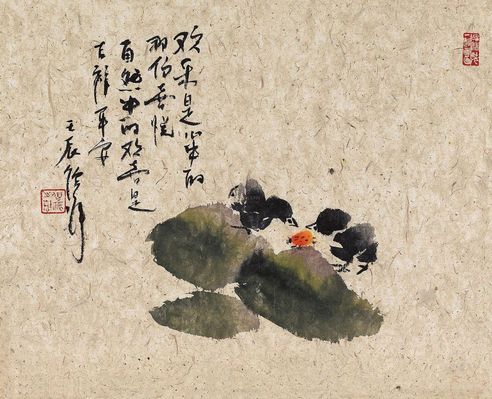 欢乐是心中的
那份喜悦
自然中的欢喜是
吉祥平安
壬辰